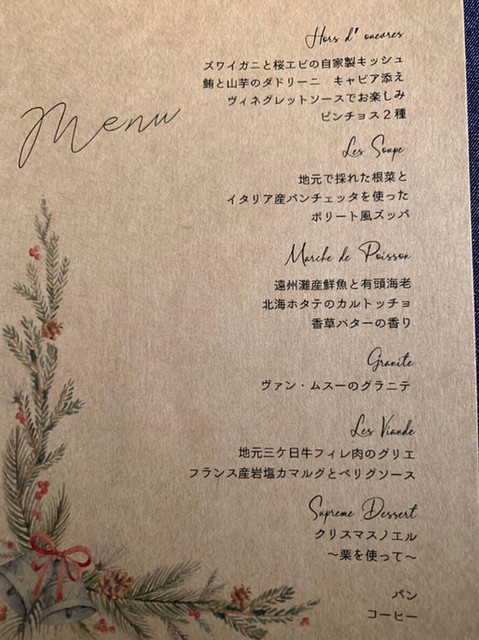 Menu
Hors d' oueures
ズワイガニと桜エビの自家製キッシュ
鮪と山芋のダドリーニ　キャビア添え
ヴィネグレットソースでお楽しみ
ピンチョス２種
Les Soupe
地元で採れた根菜と
イタリア産パンチェッタを使った
ボリート風ズッパ
Marche de Poisson
遠州灘産鮮魚と有頭海老
北海ホタテのカルトッチョ
香草バターの香り
Granite
ヴァン・ムスーのグラニテ
Les Viande
地元三ケ日牛フィレ肉のグリエ
フランス産岩塩カマルグとペリグソース
Supreme Dessert
クリスマスノエル
～栗を使って～
パン
コーヒー